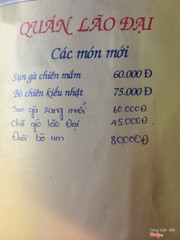 QUÁN LÃO ĐẠI
Các món mới
Sụn gà chiên mắm 60.000 Đ
Bò chiên kiểu nhật 75.000 Đ
Sụn gà rang muối 60.000 Đ
Chả giò lão Đại 45.000
Đuôi bò um 80000 Đ